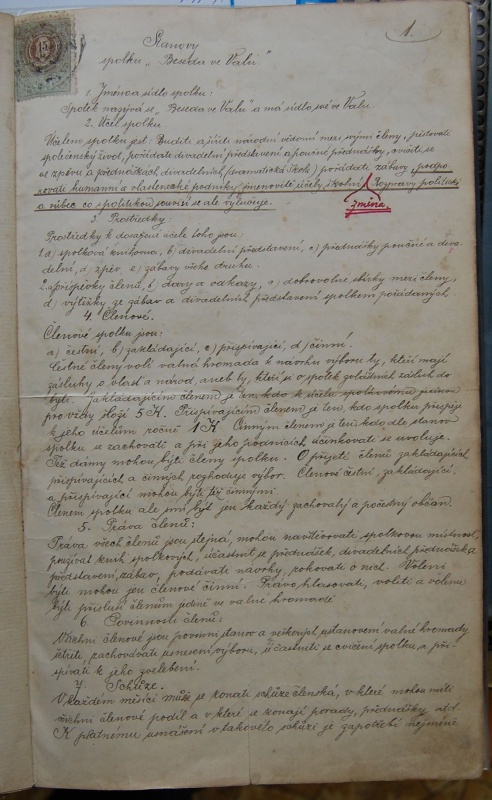 1.
Stanovy
spolku „Beseda ve Valu"
1. Jméno a sídlo spolku:
Spolek nazývá se „Beseda ve Valu" a má sídlo své ve Valu.
2. Účel spolku
Účelem spolku jest: Buditi a šířiti národní vědomí mezi svými členy, pěstovati
společenský život, pořádati divadelní představení a poučné přednášky, cvičiti se
ve zpěvu a přednáškách divadelních, (dramatická škola) pořádati zábavy a podpo-
rovati humanní a vlastenecké podniky jmenovitě účely školní. Rozpravy politické
a vůbec co s politikou souvisí se ale vylučuje.
změna
3. Prostředky:
Prostředky k dosažení účele toho jsou:
1. a) spolková knihovna, b) divadelní představení, c) přednášky poučné a diva-
delní, d) zpěv, e) zábavy všeho druhu.
2. a) příspěvky členů, b) dary a odkazy, c) dobrovolné sbírky mezi členy,
d) výtěžky ze zábav a divadelních představení spolkem pořádaných.
4. Členové.
Členové spolku jsou:
a) čestní, b) zakládající, c) přispívající, d) činní.
Čestné členy volí valná hromada k návrhu výboru ty, kteří mají
zásluhy o vlast a národ, aneb ty, kteří si o spolek zvláštních zásluh do-
byli. Zakládajícím členem je ten, kdo k účelu spolkovému jednou
pro vždy složí 5 K. Přispívajícím členem je ten, kdo spolku přispěje
k jeho účelům ročně 1 K. Činným členem je ten, kdo dle stanov
spolku se zachovati a při jeho podnicích účinkovati se uvoluje.
Též dámy mohou býti členy spolku. O přijetí členů zakládajících
přispívajících a činných rozhoduje výbor. Členové čestní, zakládající
a přispívající mohou býti též činnými.
Členem spolku ale smí být jen každý zachovalý a počestný občan.
5. Práva členů:
Práva všech členů jsou stejná, mohou navštěvovati spolkovou místnost,
používat knih spolkových, účastnit se přednášek, divadelních přednášek a
představení, zábav, podávati návrhy, rokovati o nich. Voleni
býti mohou jen členové činní. Právo hlasovati, voliti a volenu
býti přísluší členům jedině ve valné hromadě
6. Povinnosti členů:
Všichni členové jsou povinni stanov a veškerých ustanovení valné hromady
šetřiti, zachovávati usnesení výboru, účastniti se cvičení spolku a při-
spívati k jeho zvelebení.
7. Schůze.
V každém měsíci může se konati schůze členská, v které mohou míti
všichni členové podíl a v které se konají porady, přednášky atd.
K platnému usnášení v takovéto schůzi je zapotřebí nejméně